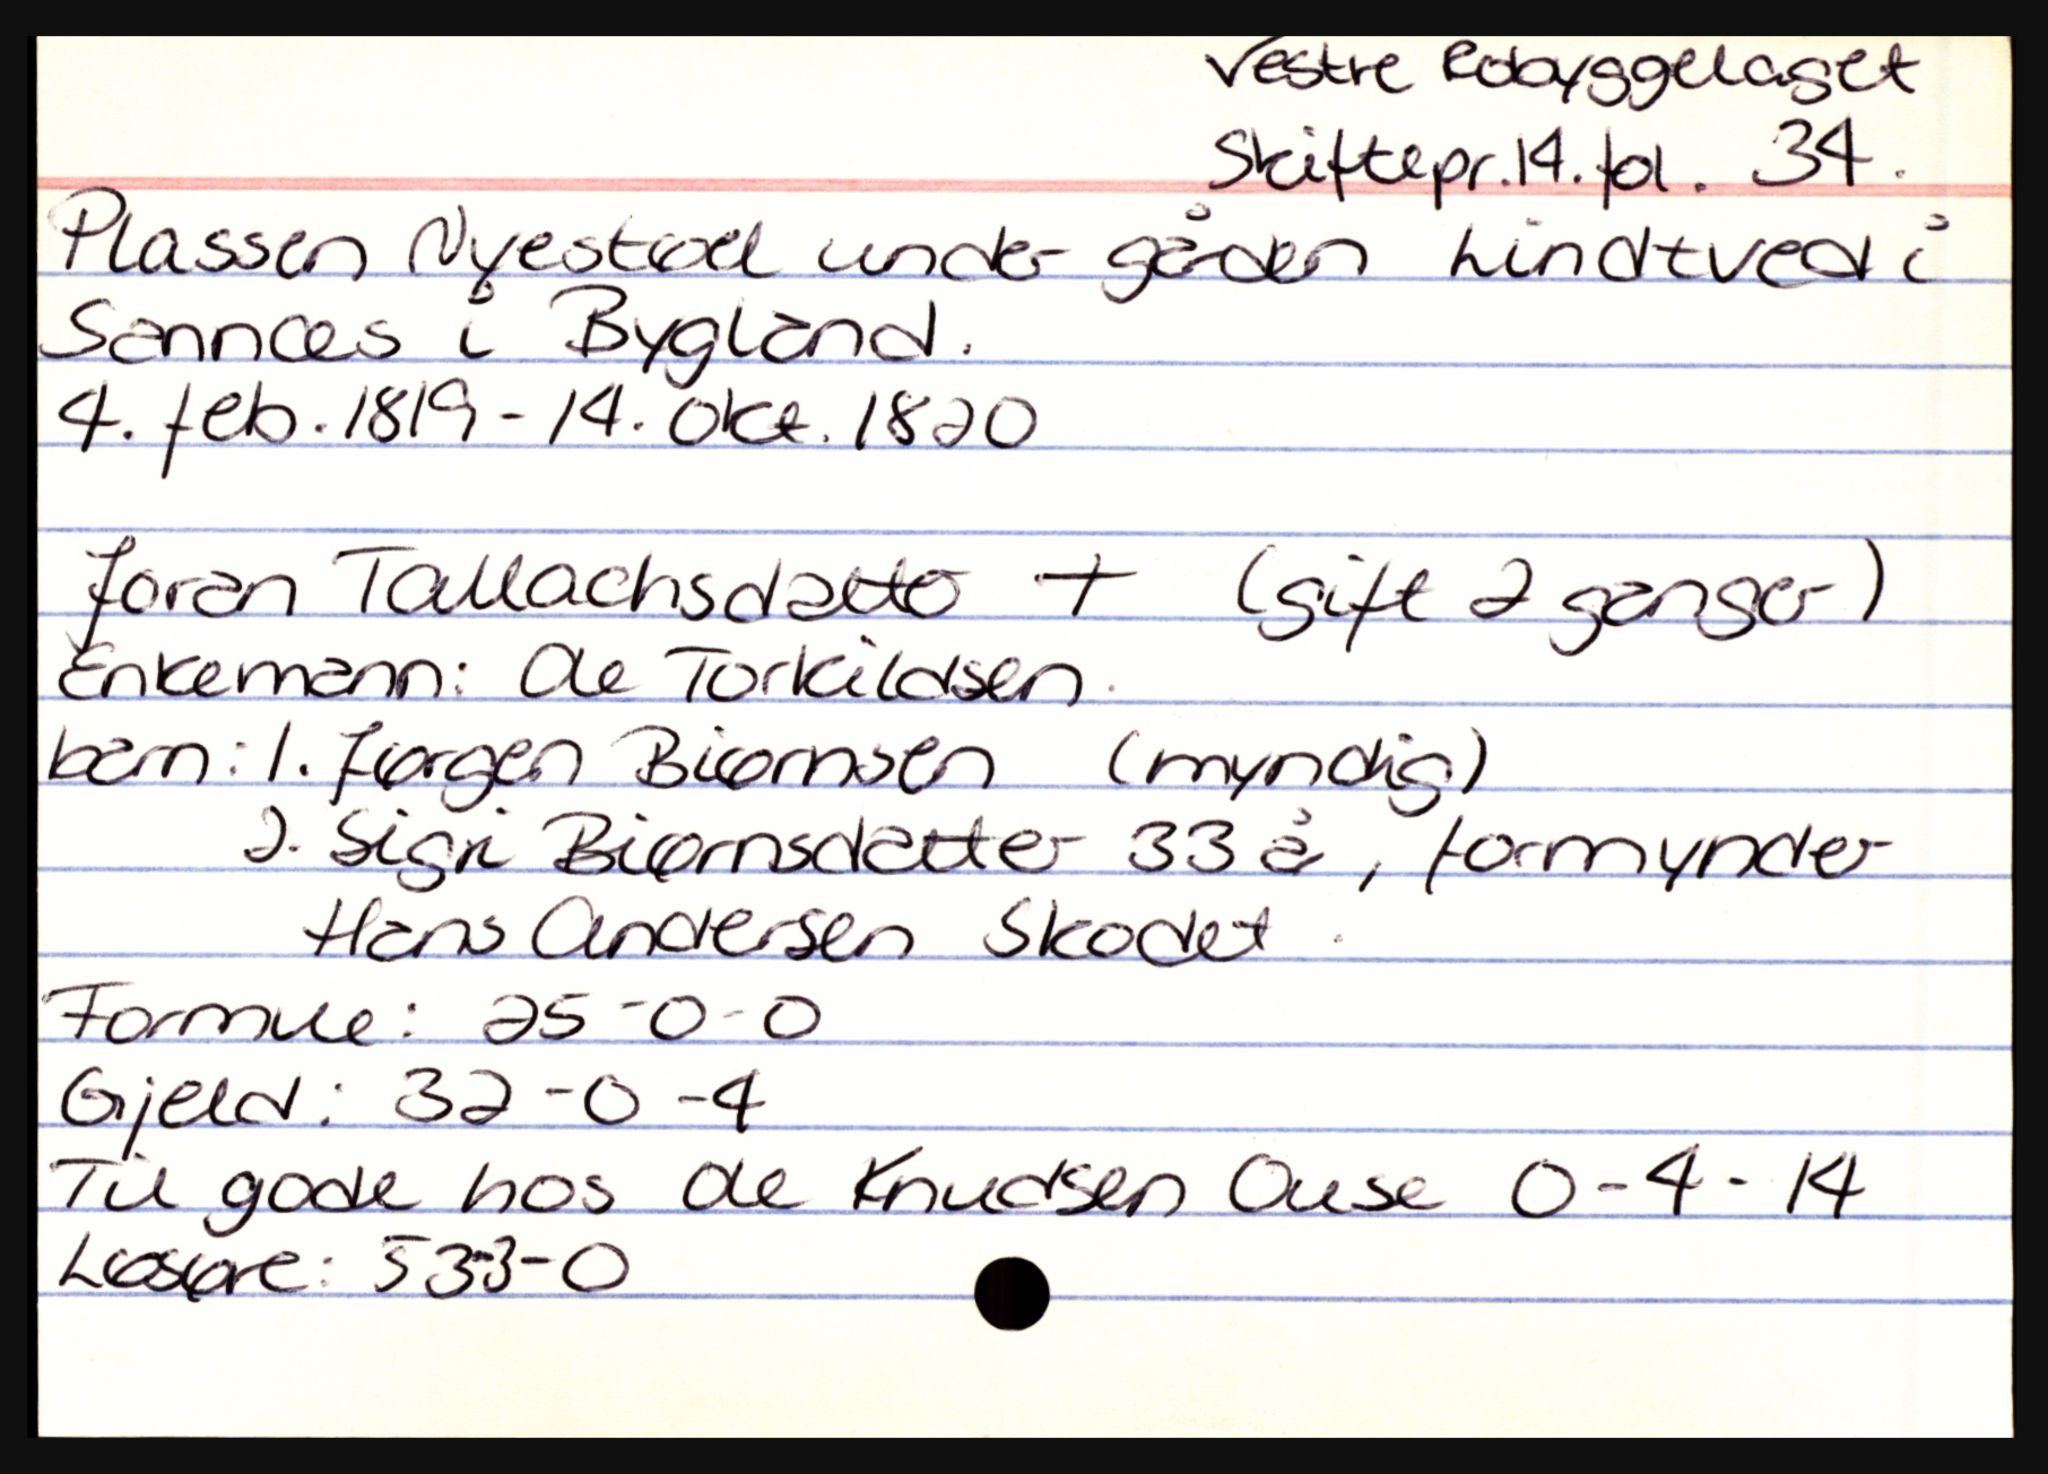 Vestre Robyggelaget
Skiftepr. 14. fol. 34.
Plassen Nyestøel under gården Lindtved i
Sannæs i Bygland.
4. feb. 1819 - 14. okt. 1820
Joran Tallachsdatter + (gift 2 ganger)
Enkemann: Ole Torkildsen.
barn: 1. Jørgen Biørnsen (myndig)
2. Sigri Biørnsdatter 33 å, formynder
Hans Andersen Skodet.
Formue: 25-0-0
Gjeld: 32-0-4
Til gode hos Ole Knudsen Ouse 0-4-14
Løsøre: 53-3-0